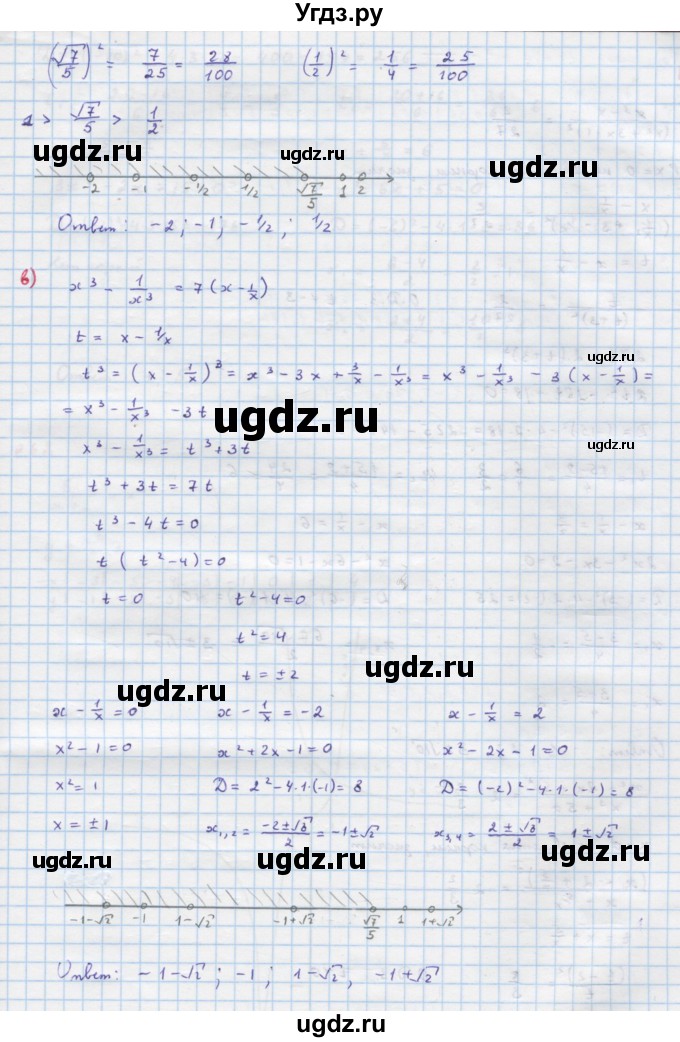 Угдз.ру
(√7/5)² = 7/25 = 28/100    (1/2)² = 1/4 = 25/100
1 > √7/5 > 1/2
ugdz.ru ugdz.ru ugdz.ru
-2 -1 -1/2 1/2 √7/5 1 2
Ответ: -2; -1; -1/2; 1/2
в) x³ - 1/x³ = 7(x - 1/x)
t = x - 1/x
ugdz.ru
t³ = (x - 1/x)³ = x³ - 3x + 3/x - 1/x³ = x³ - 1/x³ - 3(x - 1/x) =
= x³ - 1/x³ - 3t
ugdz.ru
x³ - 1/x³ = t³ + 3t
ugdz.ru
t³ + 3t = 7t
t³ - 4t = 0
t(t² - 4) = 0
t = 0    t² - 4 = 0
t² = 4
ugdz.ru
t = ±2
ugdz.ru
x - 1/x = 0    x - 1/x = -2    x - 1/x = 2
x² - 1 = 0    x² + 2x - 1 = 0    x² - 2x - 1 = 0
x² = 1    D = 2² - 4·1·(-1) = 8    D = (-2)² - 4·1·(-1) = 8
x = ±1    x₁,₂ = (-2±√8)/2 = -1±√2    x₃,₄ = (2±√8)/2 = 1±√2
ugdz.ru ugdz.ru ugdz.ru
-1-√2 -1 1-√2 -1+√2 √7/5 1 1+√2
Ответ: -1-√2; -1; 1-√2, -1+√2
ugdz.ru